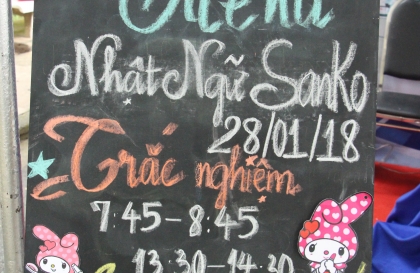 Nhật Ngữ SanKo
28/01/18
Trắc nghiệm
7:45-8:45
13:30-14:30